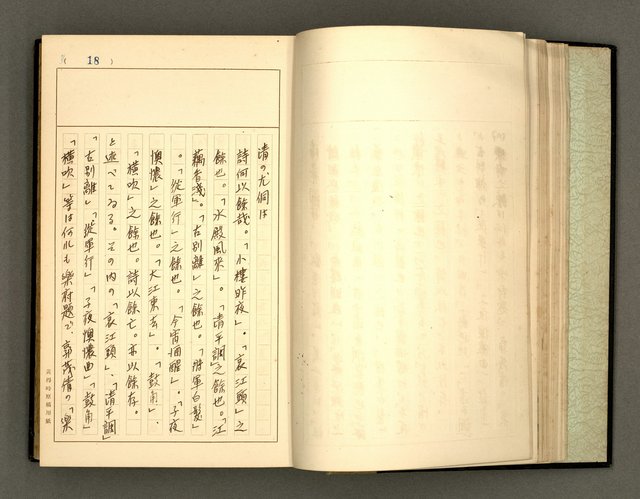 ( 18 )
清の尤侗は
詩何以餘哉。「小樓昨夜」。「哀江頭」之
餘也。「水殿風來」。「清平調」之餘也。「江
藕香淺」。「古別離」之餘也。「將軍白髮」
。「從軍行」之餘也。「今宵酒醒」。「子夜
懊憹」之餘也。「大江東去」。「鼓角」、
「橫吹」之餘也。詩以餘亡。亦以餘存。
と述べてゐる。その内の「哀江頭」、「清平調」
「古別離」「從軍行」「子夜懊憹曲」「鼓角」
「橫吹」等は何れも樂府題で、郭茂倩の「樂
黃得時原稿用紙